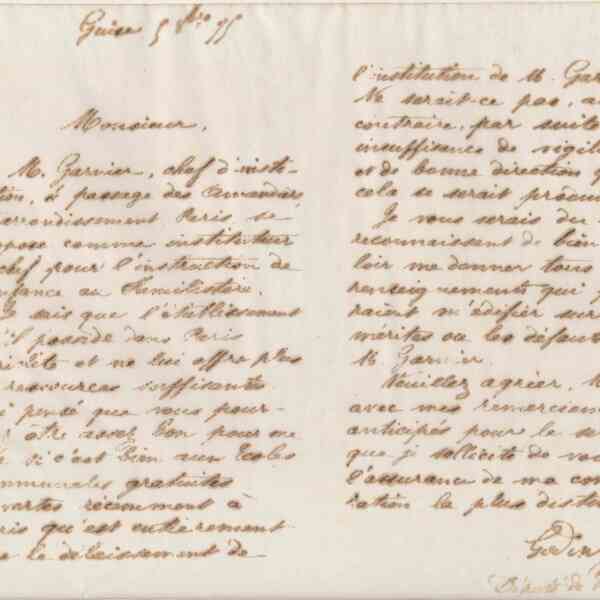 Guise 5 Xbre 75
Monsieur,
M. Garnier, chef d'insti-
tion, 6 passage des Amandiers,
arrondissement Paris se
opose comme instituteur
chef pour l'instruction de
enfance au Familistère.
Je sais que l'établissement
u'il possède dans Paris
périclite et ne lui offre plus
ressources suffisantes.
ai pensé que vous pour-
être assez bon pour me
si c'est bien aux Ecoles
mmunales gratuites
vertes récemment à
ris qu'est entièrement
le délaissement de
l'institution de M. Gar
Ne serait-ce pas, a
contraire, par suite
insuffisance de vigil
et de bonne direction q
cela se serait produi
Je vous serais
reconnaissant de bien
loir me donner tous
renseignements qui p
raient m'édifier sur
mérites ou les défau
M. Garnier.
Veuillez agréer, M
avec mes remerciem
anticipés pour le se
que je sollicite de vo
l'assurance de ma con
ration la plus distin
Godin
Député de